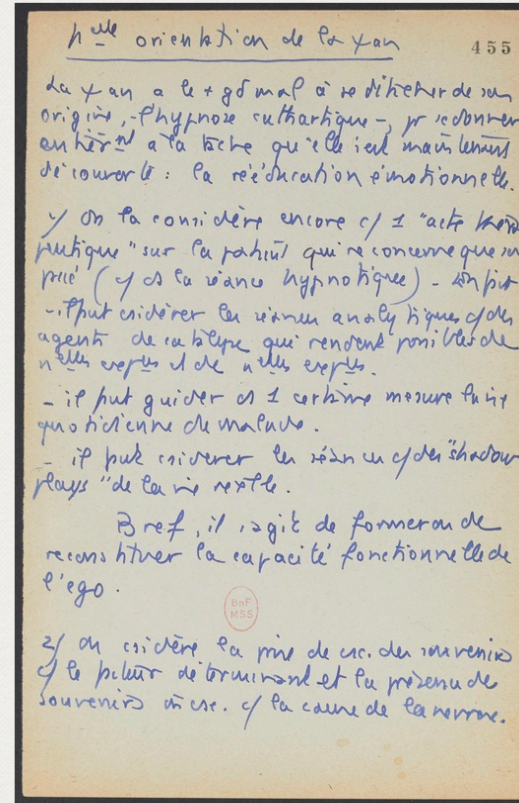 nelle orientation de la ψan
455
La ψan a le + gd mal à se détacher de son
origine, - l'hypnose cathartique -, pr se donner
entièrmt à la tâche qu'elle s'est maintenant
découverte : la rééducation émotionnelle.
1/ On la considère encore c/ 1 "acte théra
peutique" sur le patient qui ne concerne que son
passé (c/ ds la séance hypnotique) -
- il faut csidérer les séances analytiques c/ des
agents de catalyse qui rendent possibles de
nelles et de nelles
- il faut guider ds 1 certaine mesure la vie
quotidienne du malade.
- il faut csidérer les séances c/ des "shadow
plays" de la vie réelle.
Bref, il s'agit de former ou de
reconstituer la capacité fonctionnelle de
l'ego.
BnF
MSS
2/ on csidère la prise de csc. des souvenirs
c/ le facteur déterminant et la présence de
souvenirs incsc. c/ la cause de la névrose.